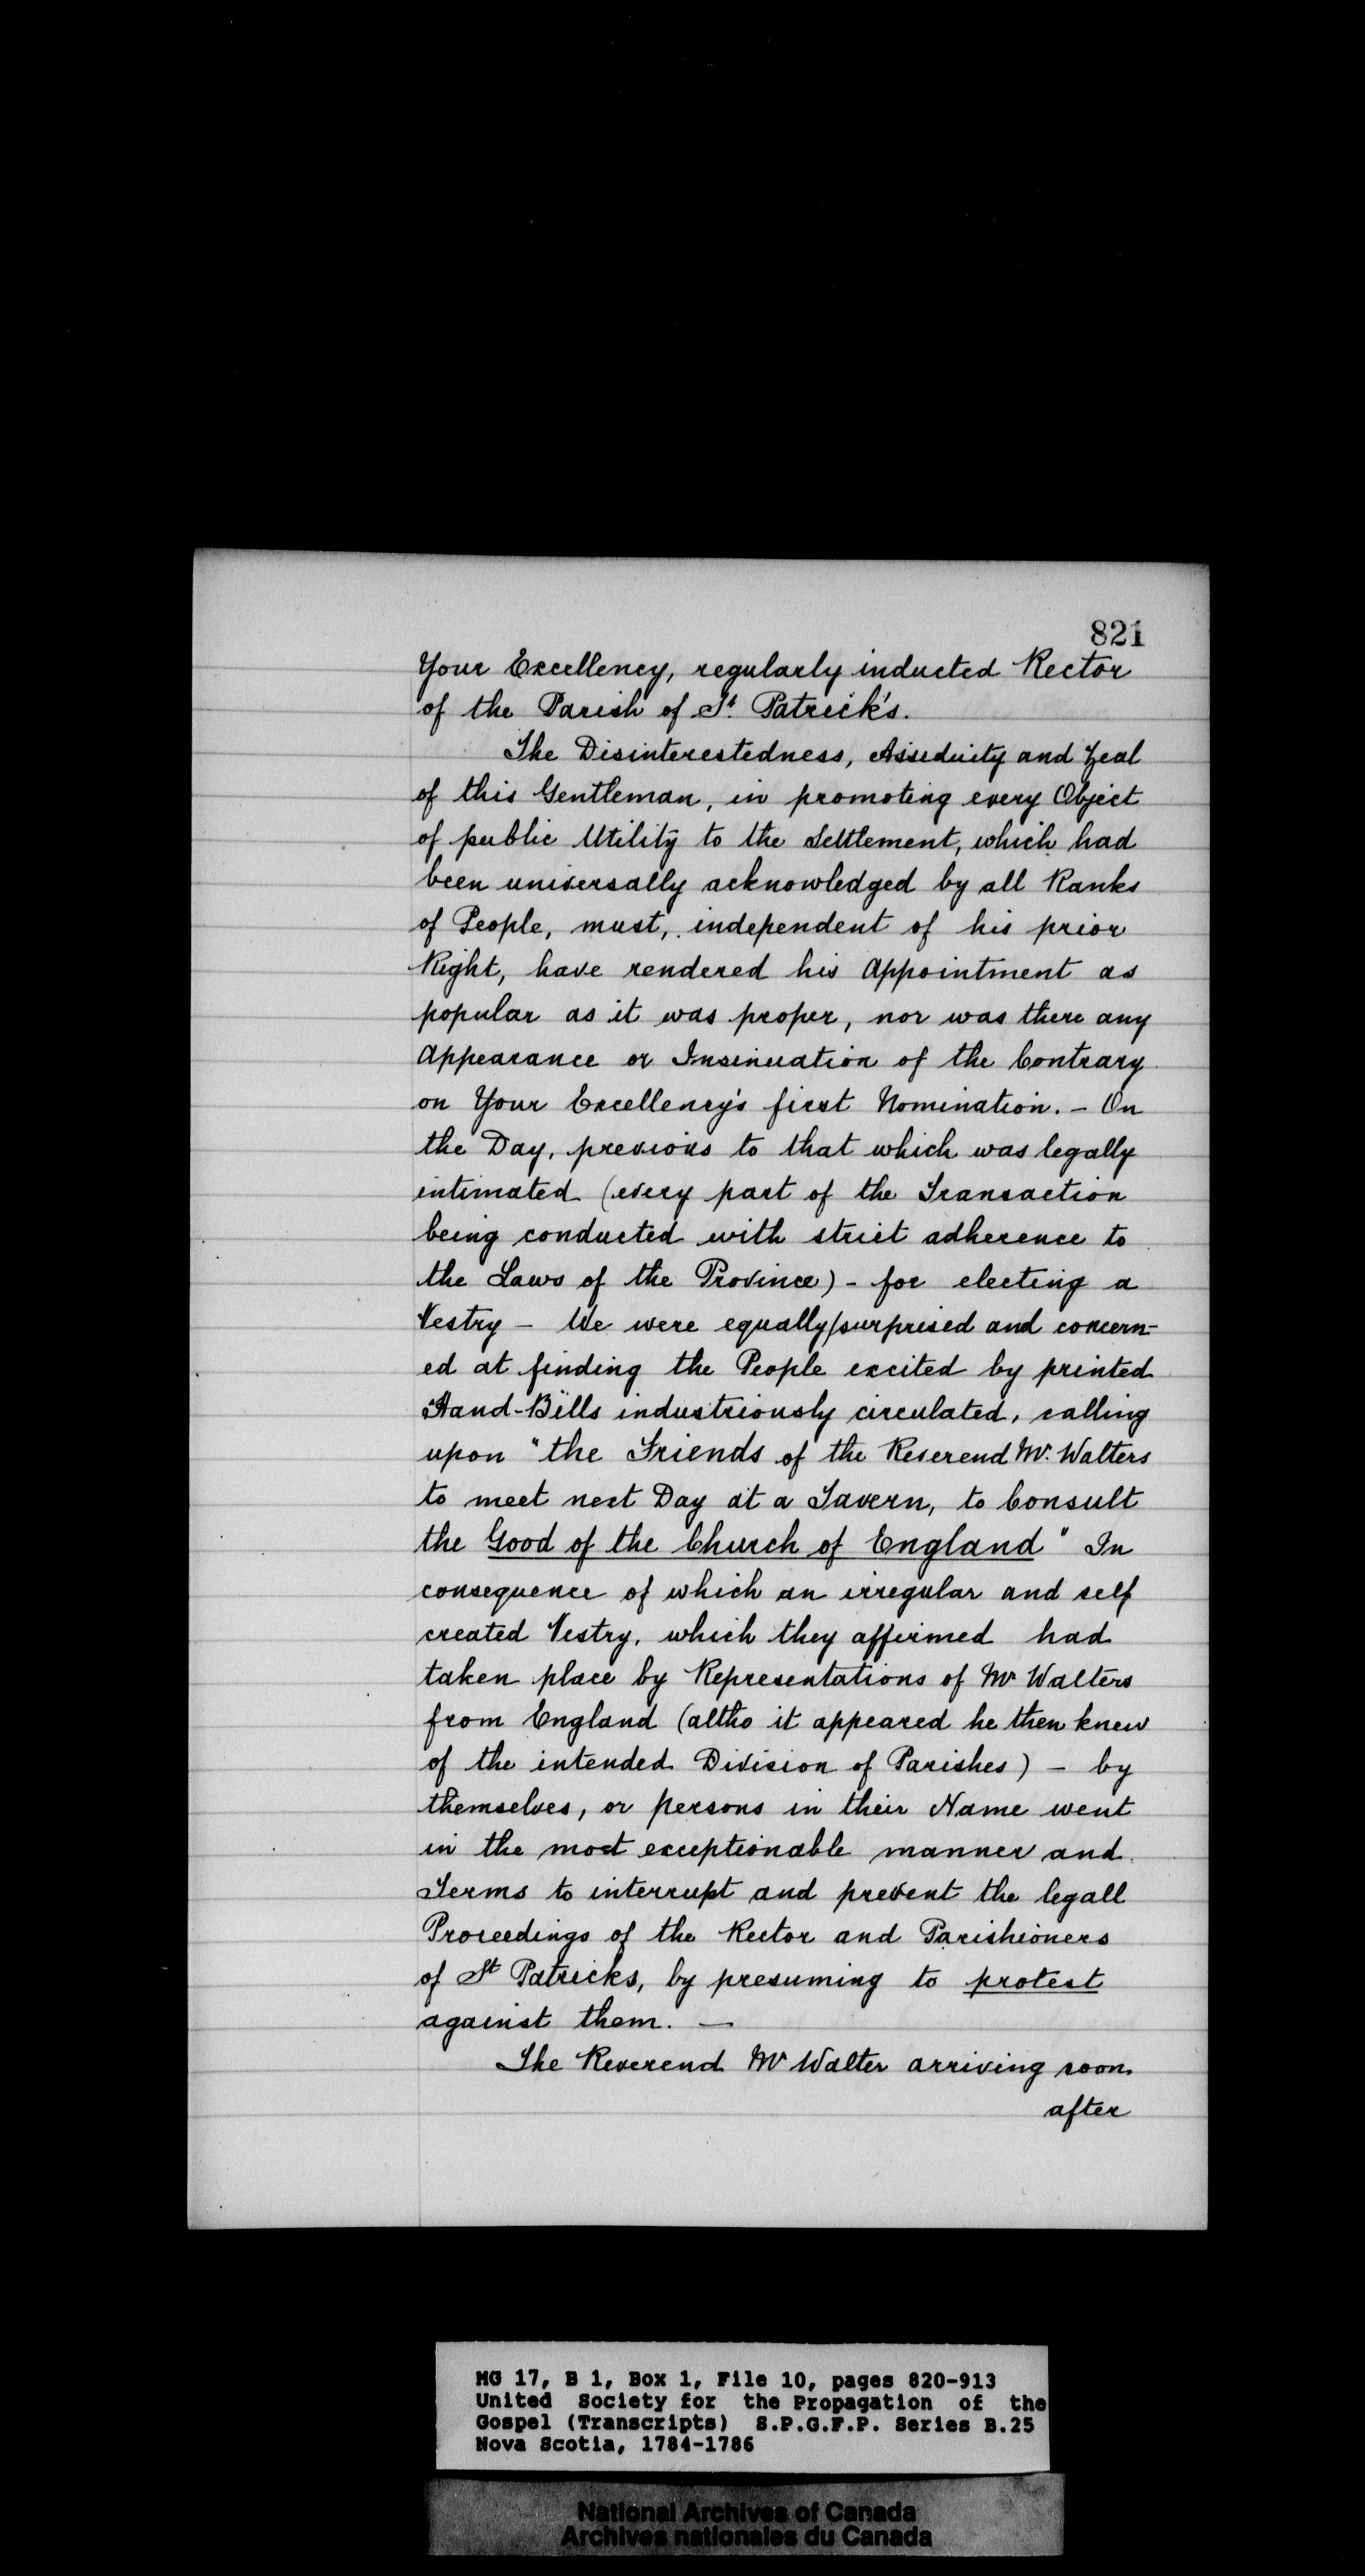 821
Your Excellency, regularly inducted Rector
of the Parish of St. Patrick's.
The Disinterestedness, Assiduity and Zeal
of this Gentleman, in promoting every Object
of public Utility to the Settlement, which had
been universally acknowledged by all Ranks
of People, must, independent of his prior
Right, have rendered his Appointment as
popular as it was proper, nor was there any
Appearance or Insinuation of the Contrary
on Your Excellency's first Nomination. - On
the Day, previous to that which was legally
intimated (every part of the Transaction
being conducted with strict adherence to
the Laws of the Province) - for electing a
Vestry - We were equally surprised and concern-
ed at finding the People excited by printed
Hand-Bills industriously circulated, calling
upon "the Friends of the Reverend Mr. Walters
to meet next Day at a Tavern, to Consult
the Good of the Church of England" In
consequence of which an irregular and self
created Vestry, which they affirmed had
taken place by Representations of Mr Walters
from England (altho it appeared he then knew
of the intended Division of Parishes) - by
themselves, or persons in their Name went
in the most exceptionable manner and
Terms to interrupt and prevent the legall
Proceedings of the Rector and Parishioners
of St Patricks, by presuming to protest
against them. —
The Reverend Mr Walter arriving soon
after
MG 17, B 1, Box 1, File 10, pages 820-913
United Society for the Propagation of the
Gospel (Transcripts) S.P.G.F.P. Series B.25
Nova Scotia, 1784-1786
National Archives of Canada
Archives nationales du Canada